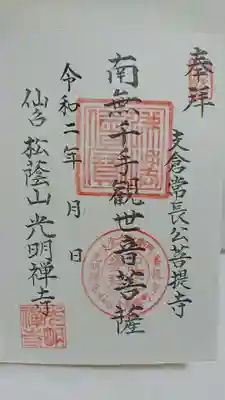 奉拝
支倉常長公菩提寺
南無千手観世音菩薩
令和二年 月 日
仙台 松蔭山 光明禅寺